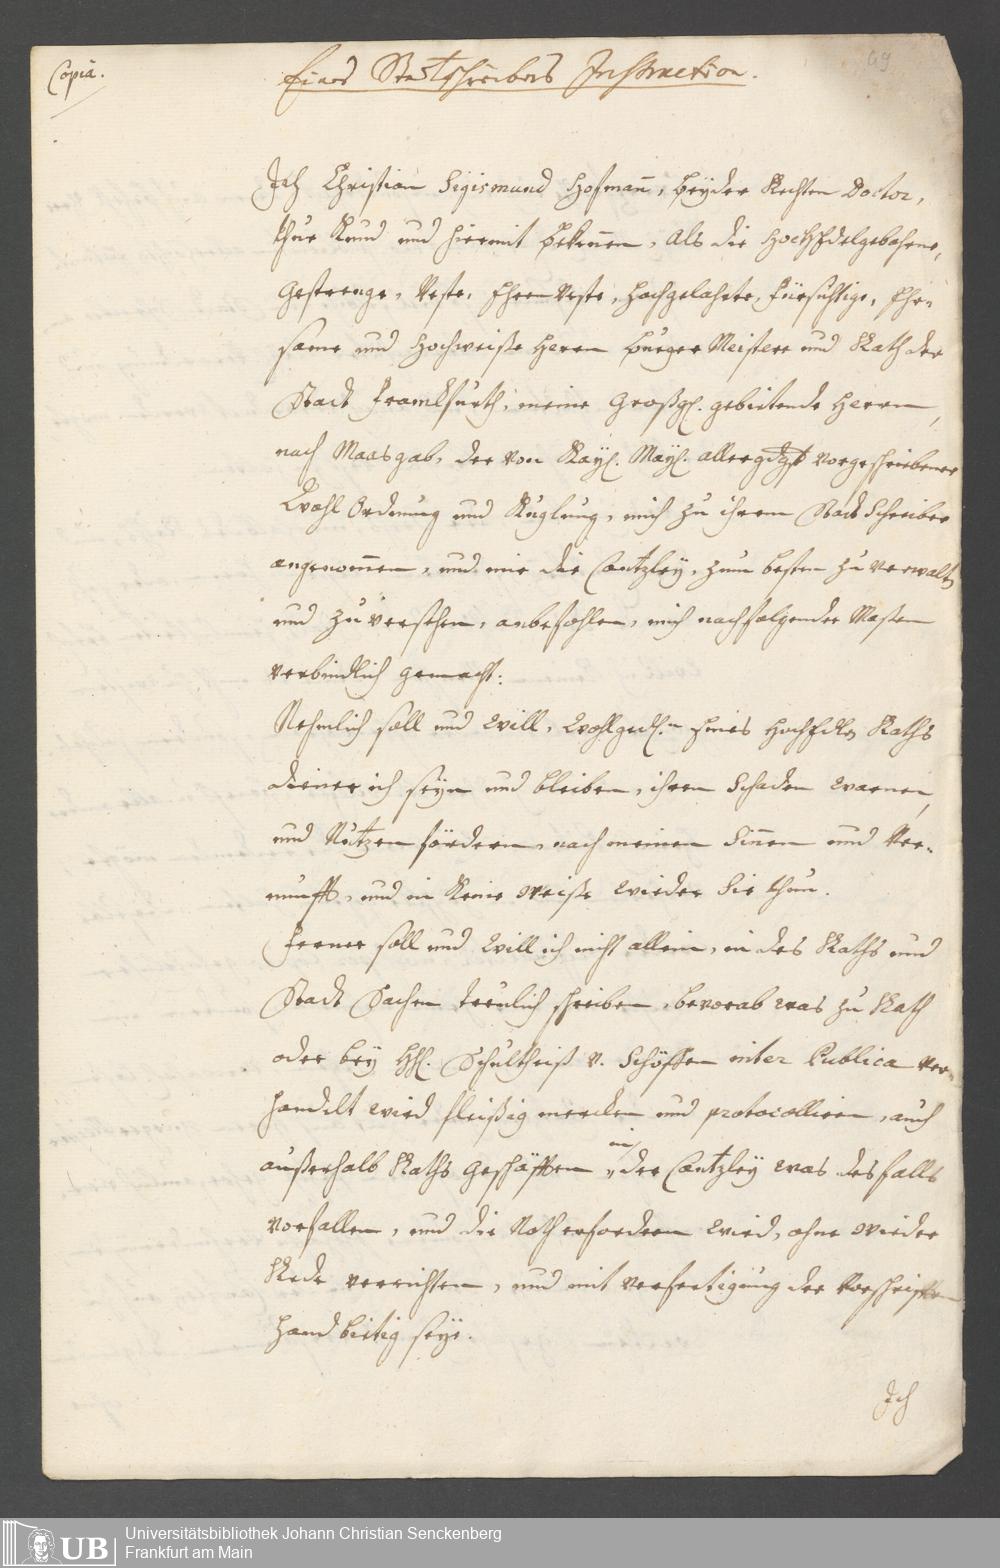 Copia.
69
Eines Stattschreibers Instruction.
Ich Christian Sigismund Hofmañ, beÿder Rechten Doctor,
thue Kund und hiermit bekennen, als die HochEdelgebohrne,
Gestrenge, Veste, EhrenVeste, Hochgelahrte, fürsichtige, Ehr-
same und Hochweiße Herrn BurgerMeistere und Rath der
Stadt Franckfurth, meine Großg. gebietende Herrn,
nach Maasgab, der von Kaÿl. Maÿl. allergdgst vorgeschriebener
Wahl Ordnung und Kuglung, mich zu ihrem StadtSchreiber
angenom̃en, und mir die Cantzleÿ, zum besten zu verwalten
und zu versehen, anbefohlen, mich nachfolgender Maßen
verbindlich gemacht:
Nehmlich soll und will, Wohlgedn. Eines HochEdlen Raths
diener ich seÿn und bleiben, ihren Schaden warnen,
und Nutzen fördern, nach meinen Siñen und Ver-
nunfft, und in Keine weiße wieder Sie thun.
Ferner soll und will ich nicht allein, in des Raths und
Stadt Sachen treulich schreiben, bevorab was zu Rath
oder beÿ HH. Schultheiß v. Schöffen inter Publica ver-
handelt wird fleißig mercken und protocolliren, auch
außerhalb Raths Geschäfften in der Cantzleÿ was desfalls
vorfallen, und die Noth erfordern wird, ohne wieder
Rede verrichten, und mit verfertigung der Vorschrifften
hand bietig seÿe.
Ich
UB
Universitätsbibliothek Johann Christian Senckenberg
Frankfurt am Main